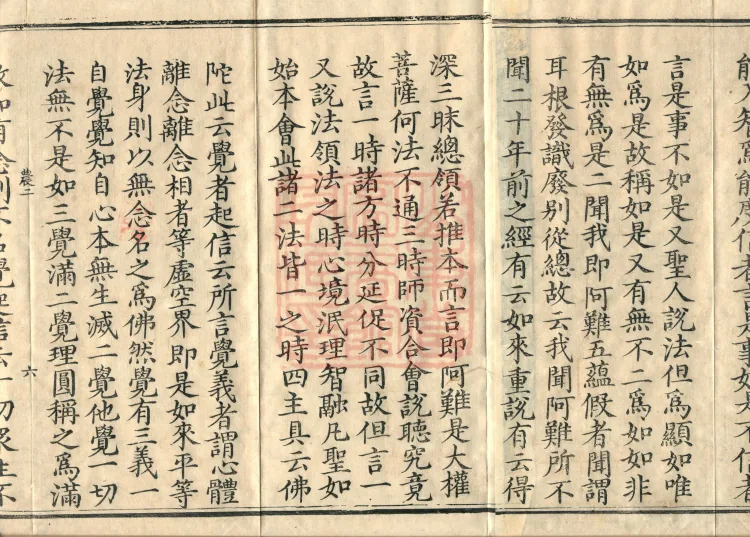 能入智爲能度信者言是事如是不信者
言是事不如是又聖人說法但爲顯如唯
如爲是故稱如是又有無不二爲如如非
有無爲是二聞我即阿難五蘊假者聞謂
耳根發識廢別從總故云我聞阿難所不
聞二十年前之經有云如來重說有云得
深三昧總領若推本而言即阿難是大權
菩薩何法不通三時師資合會說聽究竟
故言一時諸方時分延促不同故但言一
又說法領法之時心境泯理智融凡聖如
始本會此諸二法皆一之時四主具云佛
陀此云覺者起信云所言覺義者謂心體
離念離念相者等虛空界即是如來平等
法身則以無念名之爲佛然覺有三義一
自覺覺知自心本無生滅二覺他覺一切
法無不是如三覺滿二覺理圓稱之爲滿
農二
六
故知有念則不名覺起信云一切眾生不